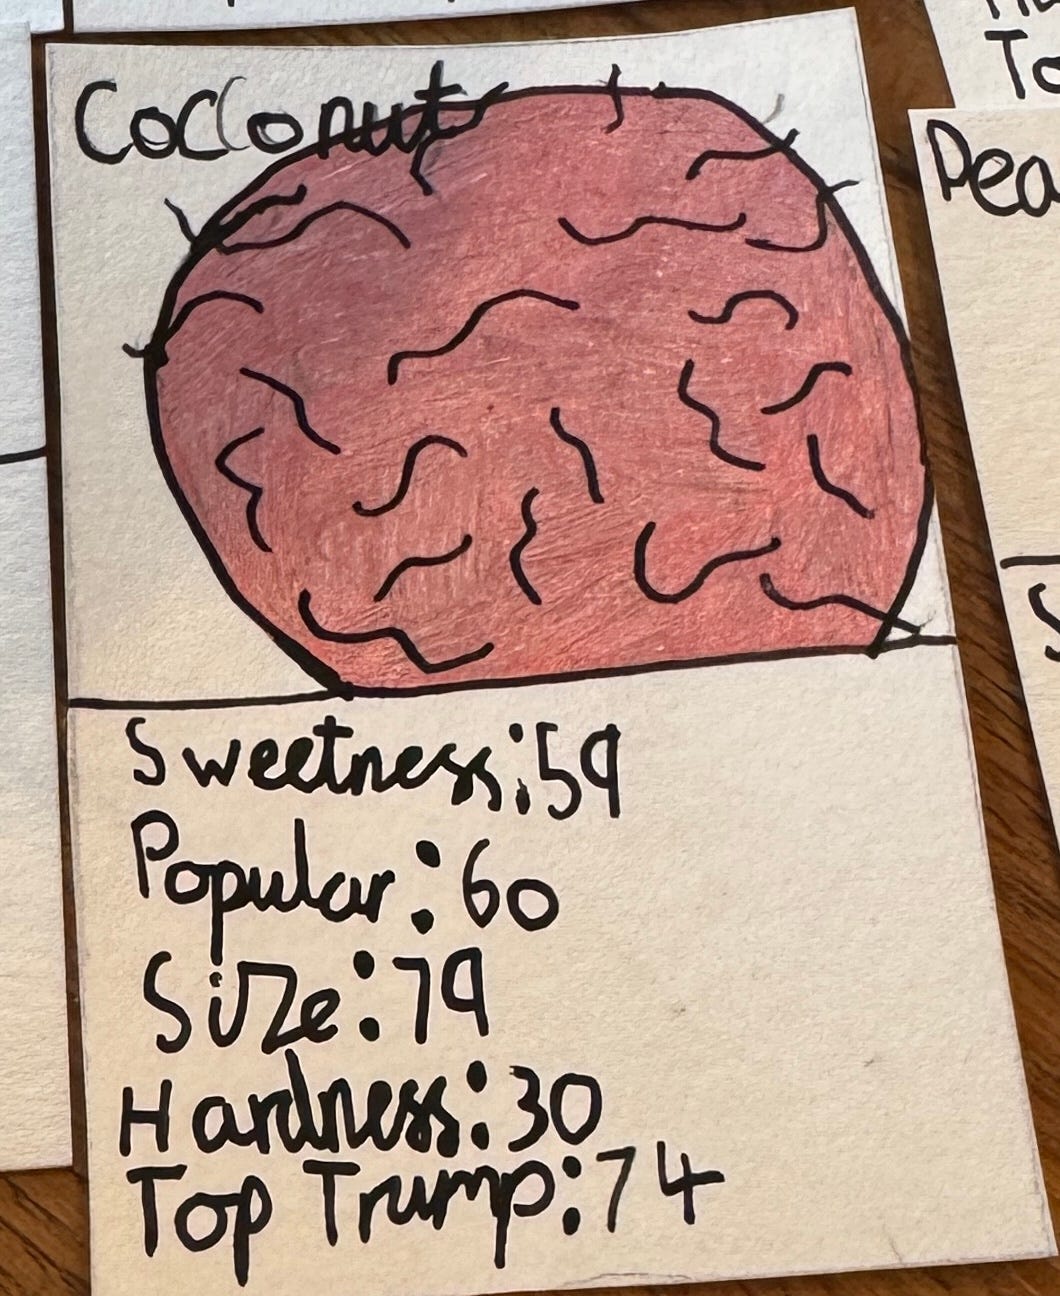 Coconut
Sweetness:59
Popular:60
Size:79
Hardness:30
Top Trump:74
To
Pea
S